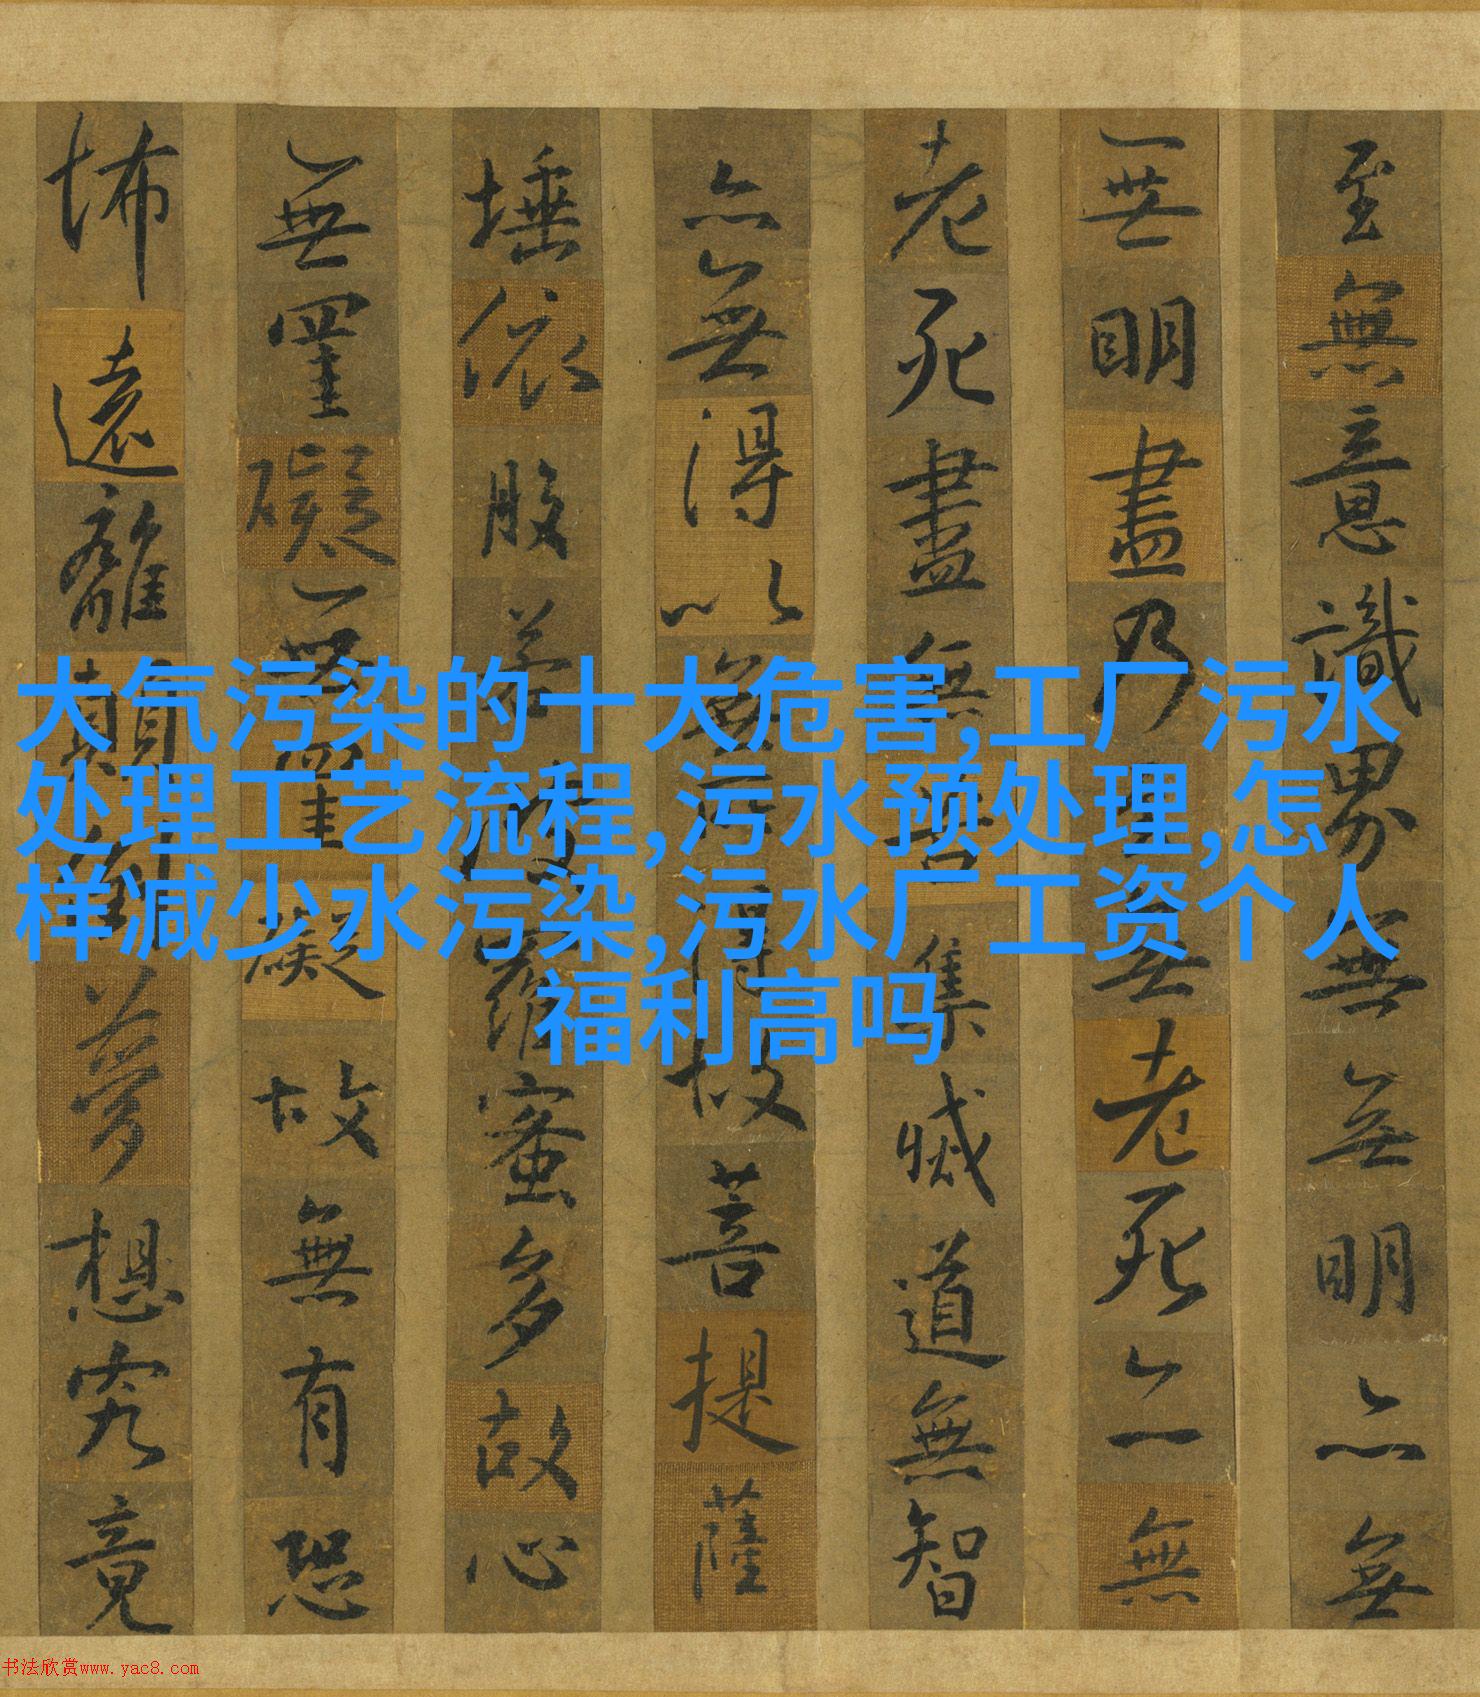 至無意識界無無明亦無
無明盡乃至無老死亦無
老死盡無苦集滅道無智
亦無得以無所得故菩提薩
埵依般若波羅蜜多故心
無罣礙無罣礙故無有恐
怖遠離顛倒夢想究竟
大气污染的十大危害,工厂污水
处理工艺流程,污水预处理,怎
样减少水污染,污水厂工资个人
福利高吗
书法欣赏www.yac8.com